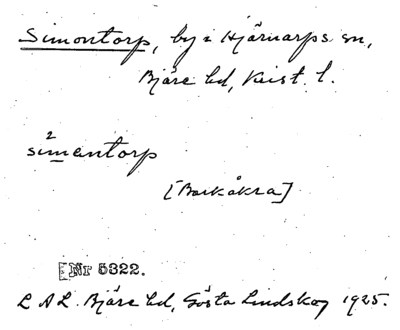 Simontorp, by i Hjärnarps sn,
Bjäre hd, Krist. l.
si²mentorp
[Barkåkra]
[Nr 5322.
L A L. Bjäre hd, Gösta Lindskog 1925.